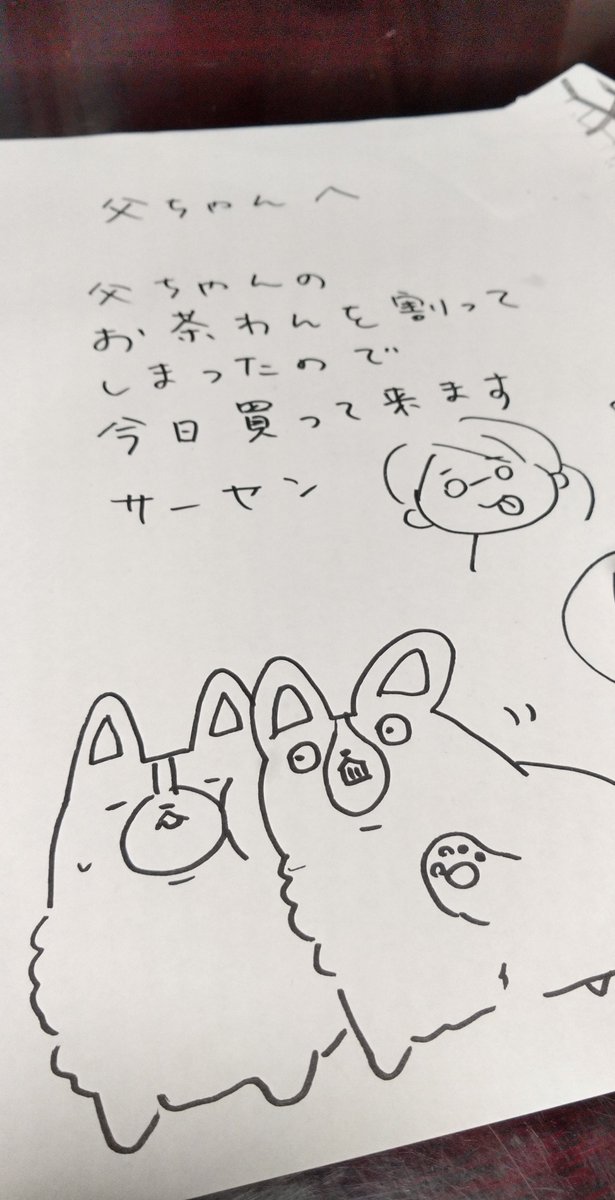 父ちゃんへ
父ちゃんの
お茶わんを割って
しまったので
今日買って来ます
サーセン